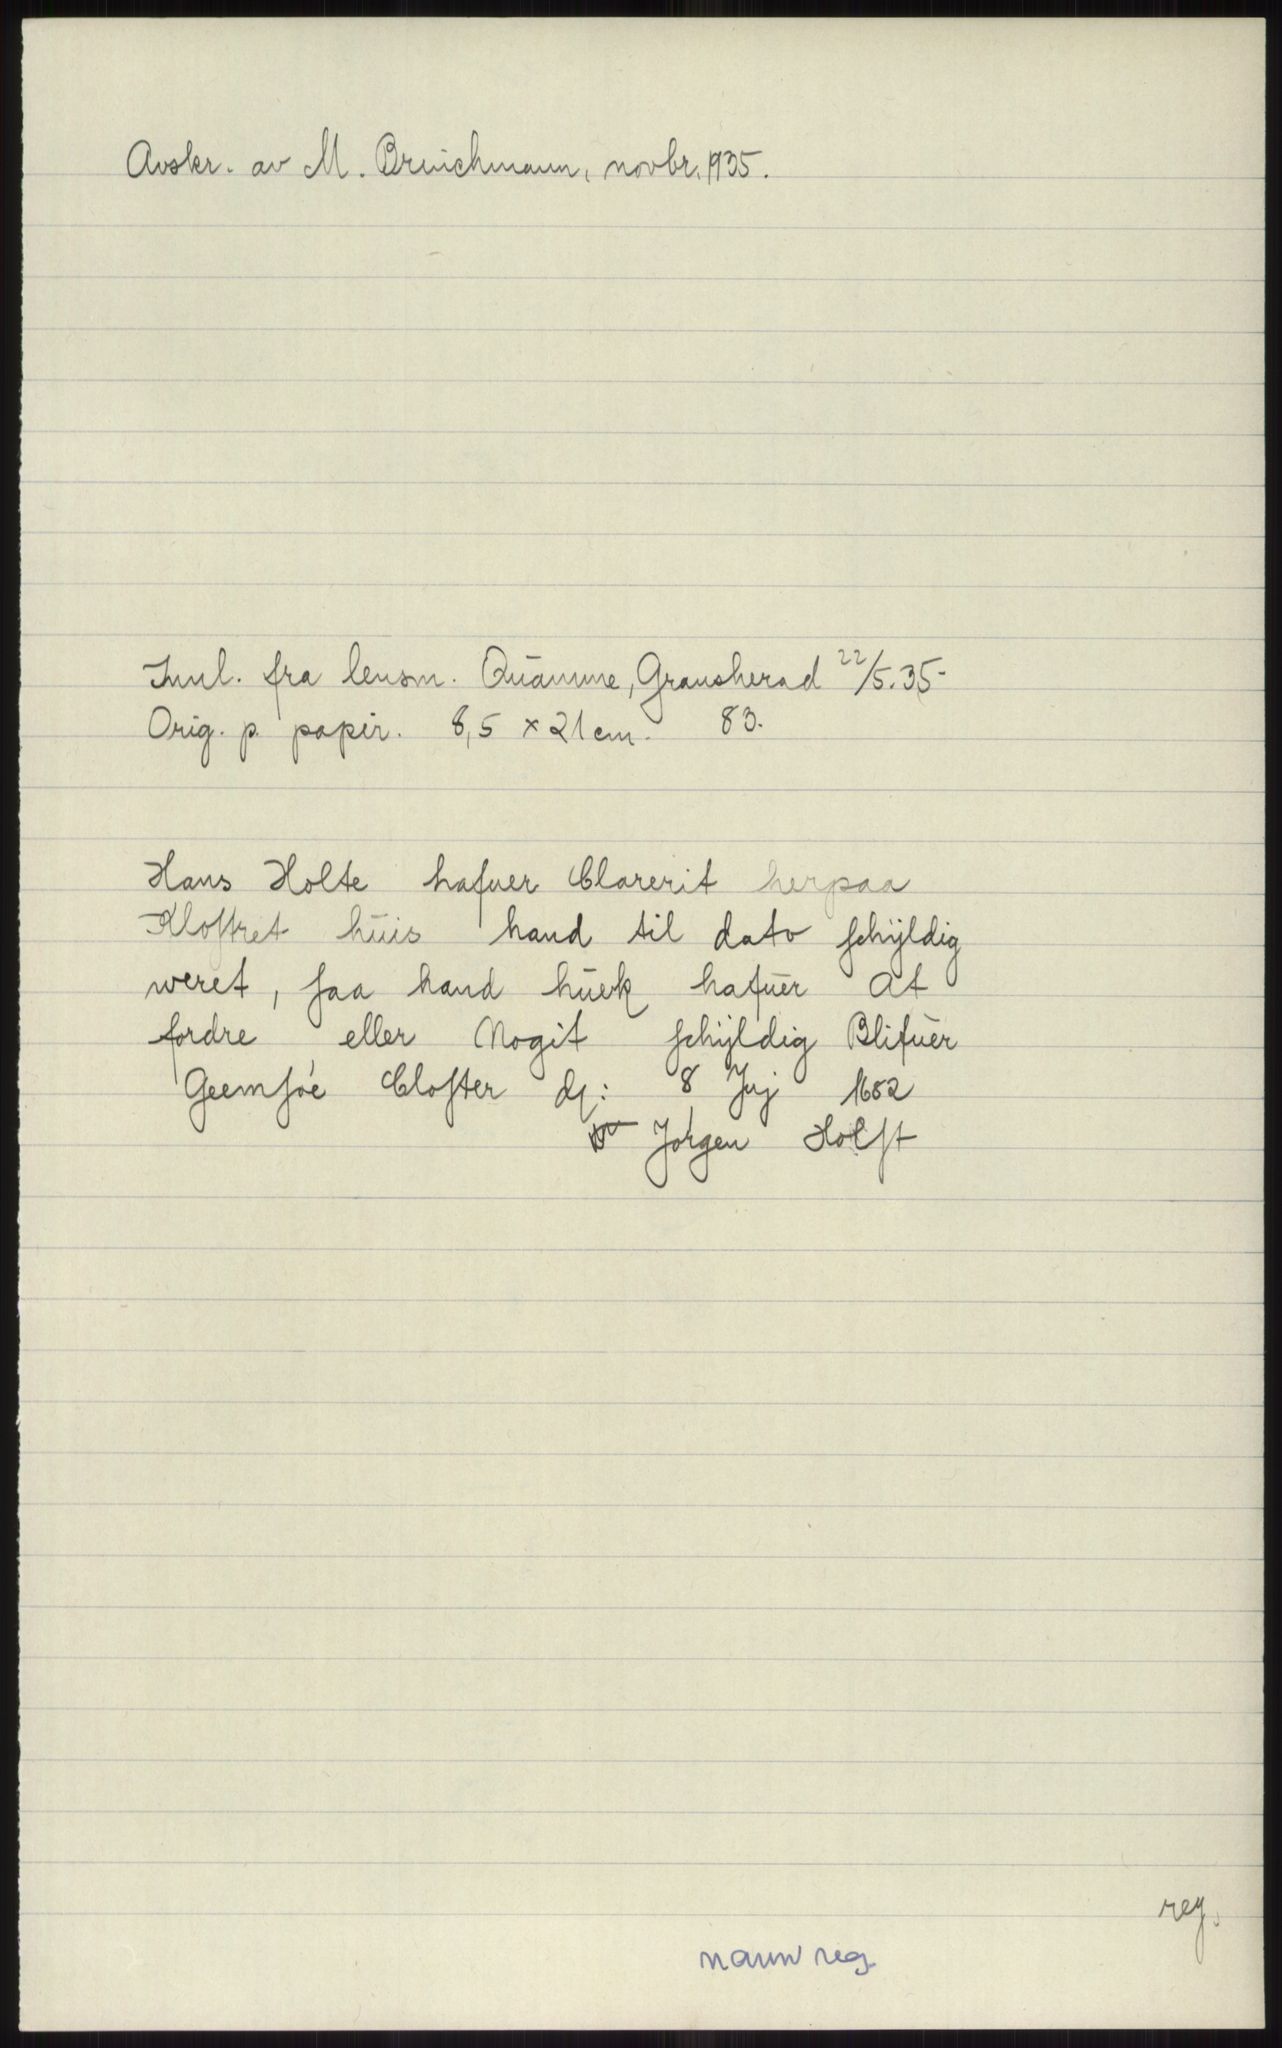 Avskr. av M. Bruichmann, novbr. 1935.
Innl. fra lensm. Quamme, Gransherad 22/5.35
Orig. p. papir. 8,5 × 21 cm. 83.
Hans Holte hafuer Clarerit herpaa
Kloſtret huis hand til dato ſchÿldig
weret, ſaa hand huerk hafuer At
fordre eller Nogit ſchÿldig Blifuer
Geemſöe Cloſter dj: 8 Juj 1682
Jörgen Holſt
reg.
navn reg.